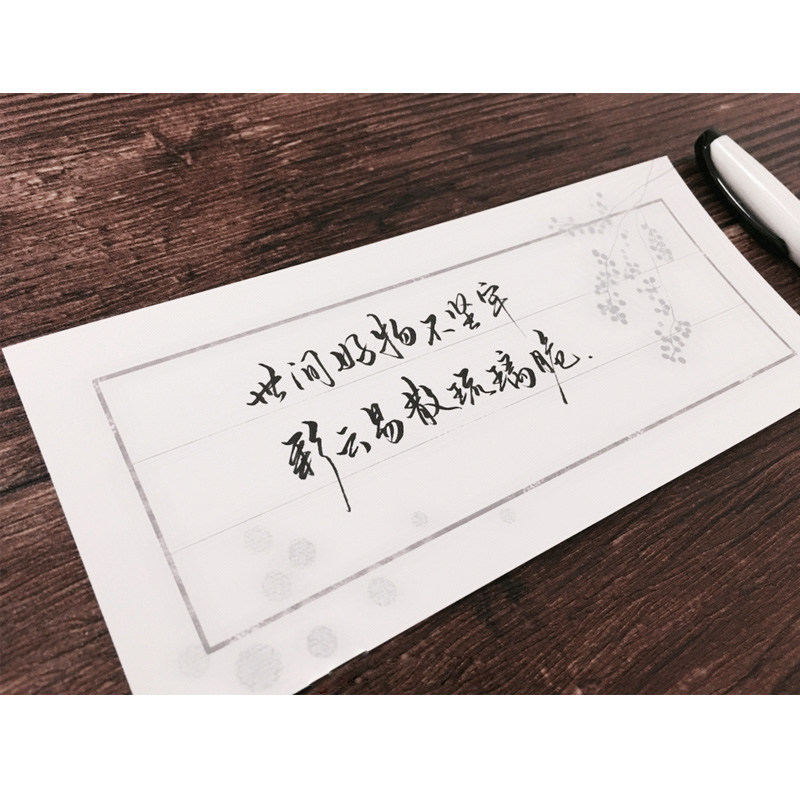 世间好物不坚牢
彩云易散琉璃脆.